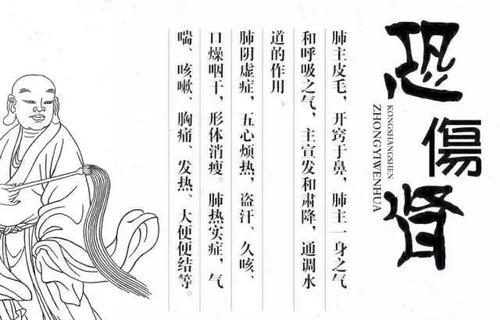 恐傷肾
KONGSHANGSHEN
ZHONGYIWENHUA
肺主皮毛，开窍于鼻，肺主一身之气
和呼吸之气，主宣发和肃降，通调水
道的作用。
肺阴虚症，五心烦热，盗汗、久咳、
口燥咽干，形体消瘦。肺热实症，气
喘、咳嗽、胸痛、发热、大便便结等。